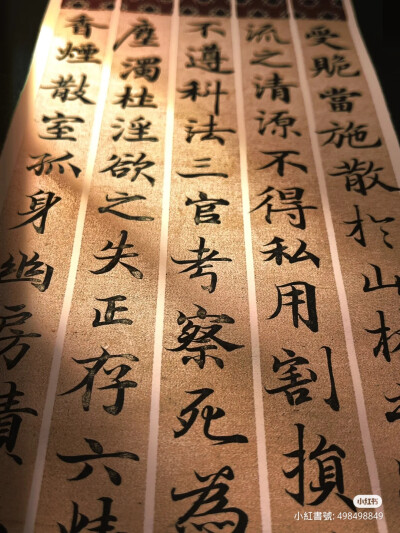 受當施散於山林
流之清源不得私用割損
不遵科法三官考察死為
塵濁杜淫欲之失正存六情
香煙散室孤身幽房積
小红书
小紅書號: 498498849